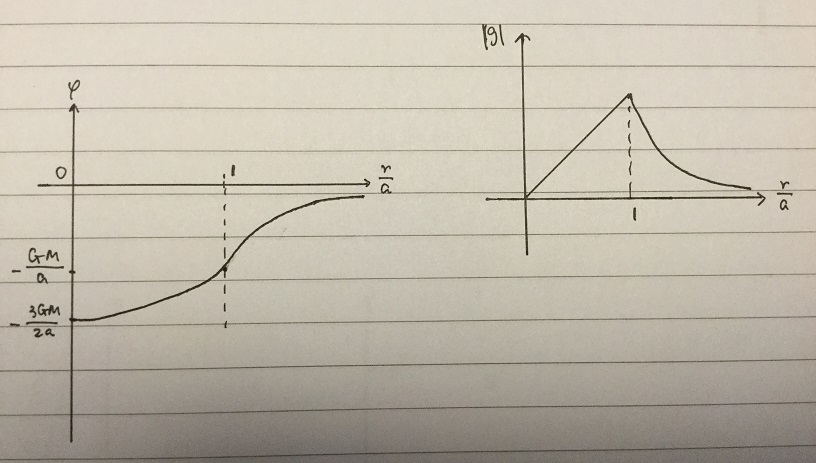 φ
0
1
r/a
- GM/a
- 3GM/2a
|g|
r/a
1